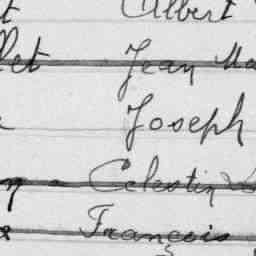 t Albert
llet Jean Ma
Joseph
Celestin
François